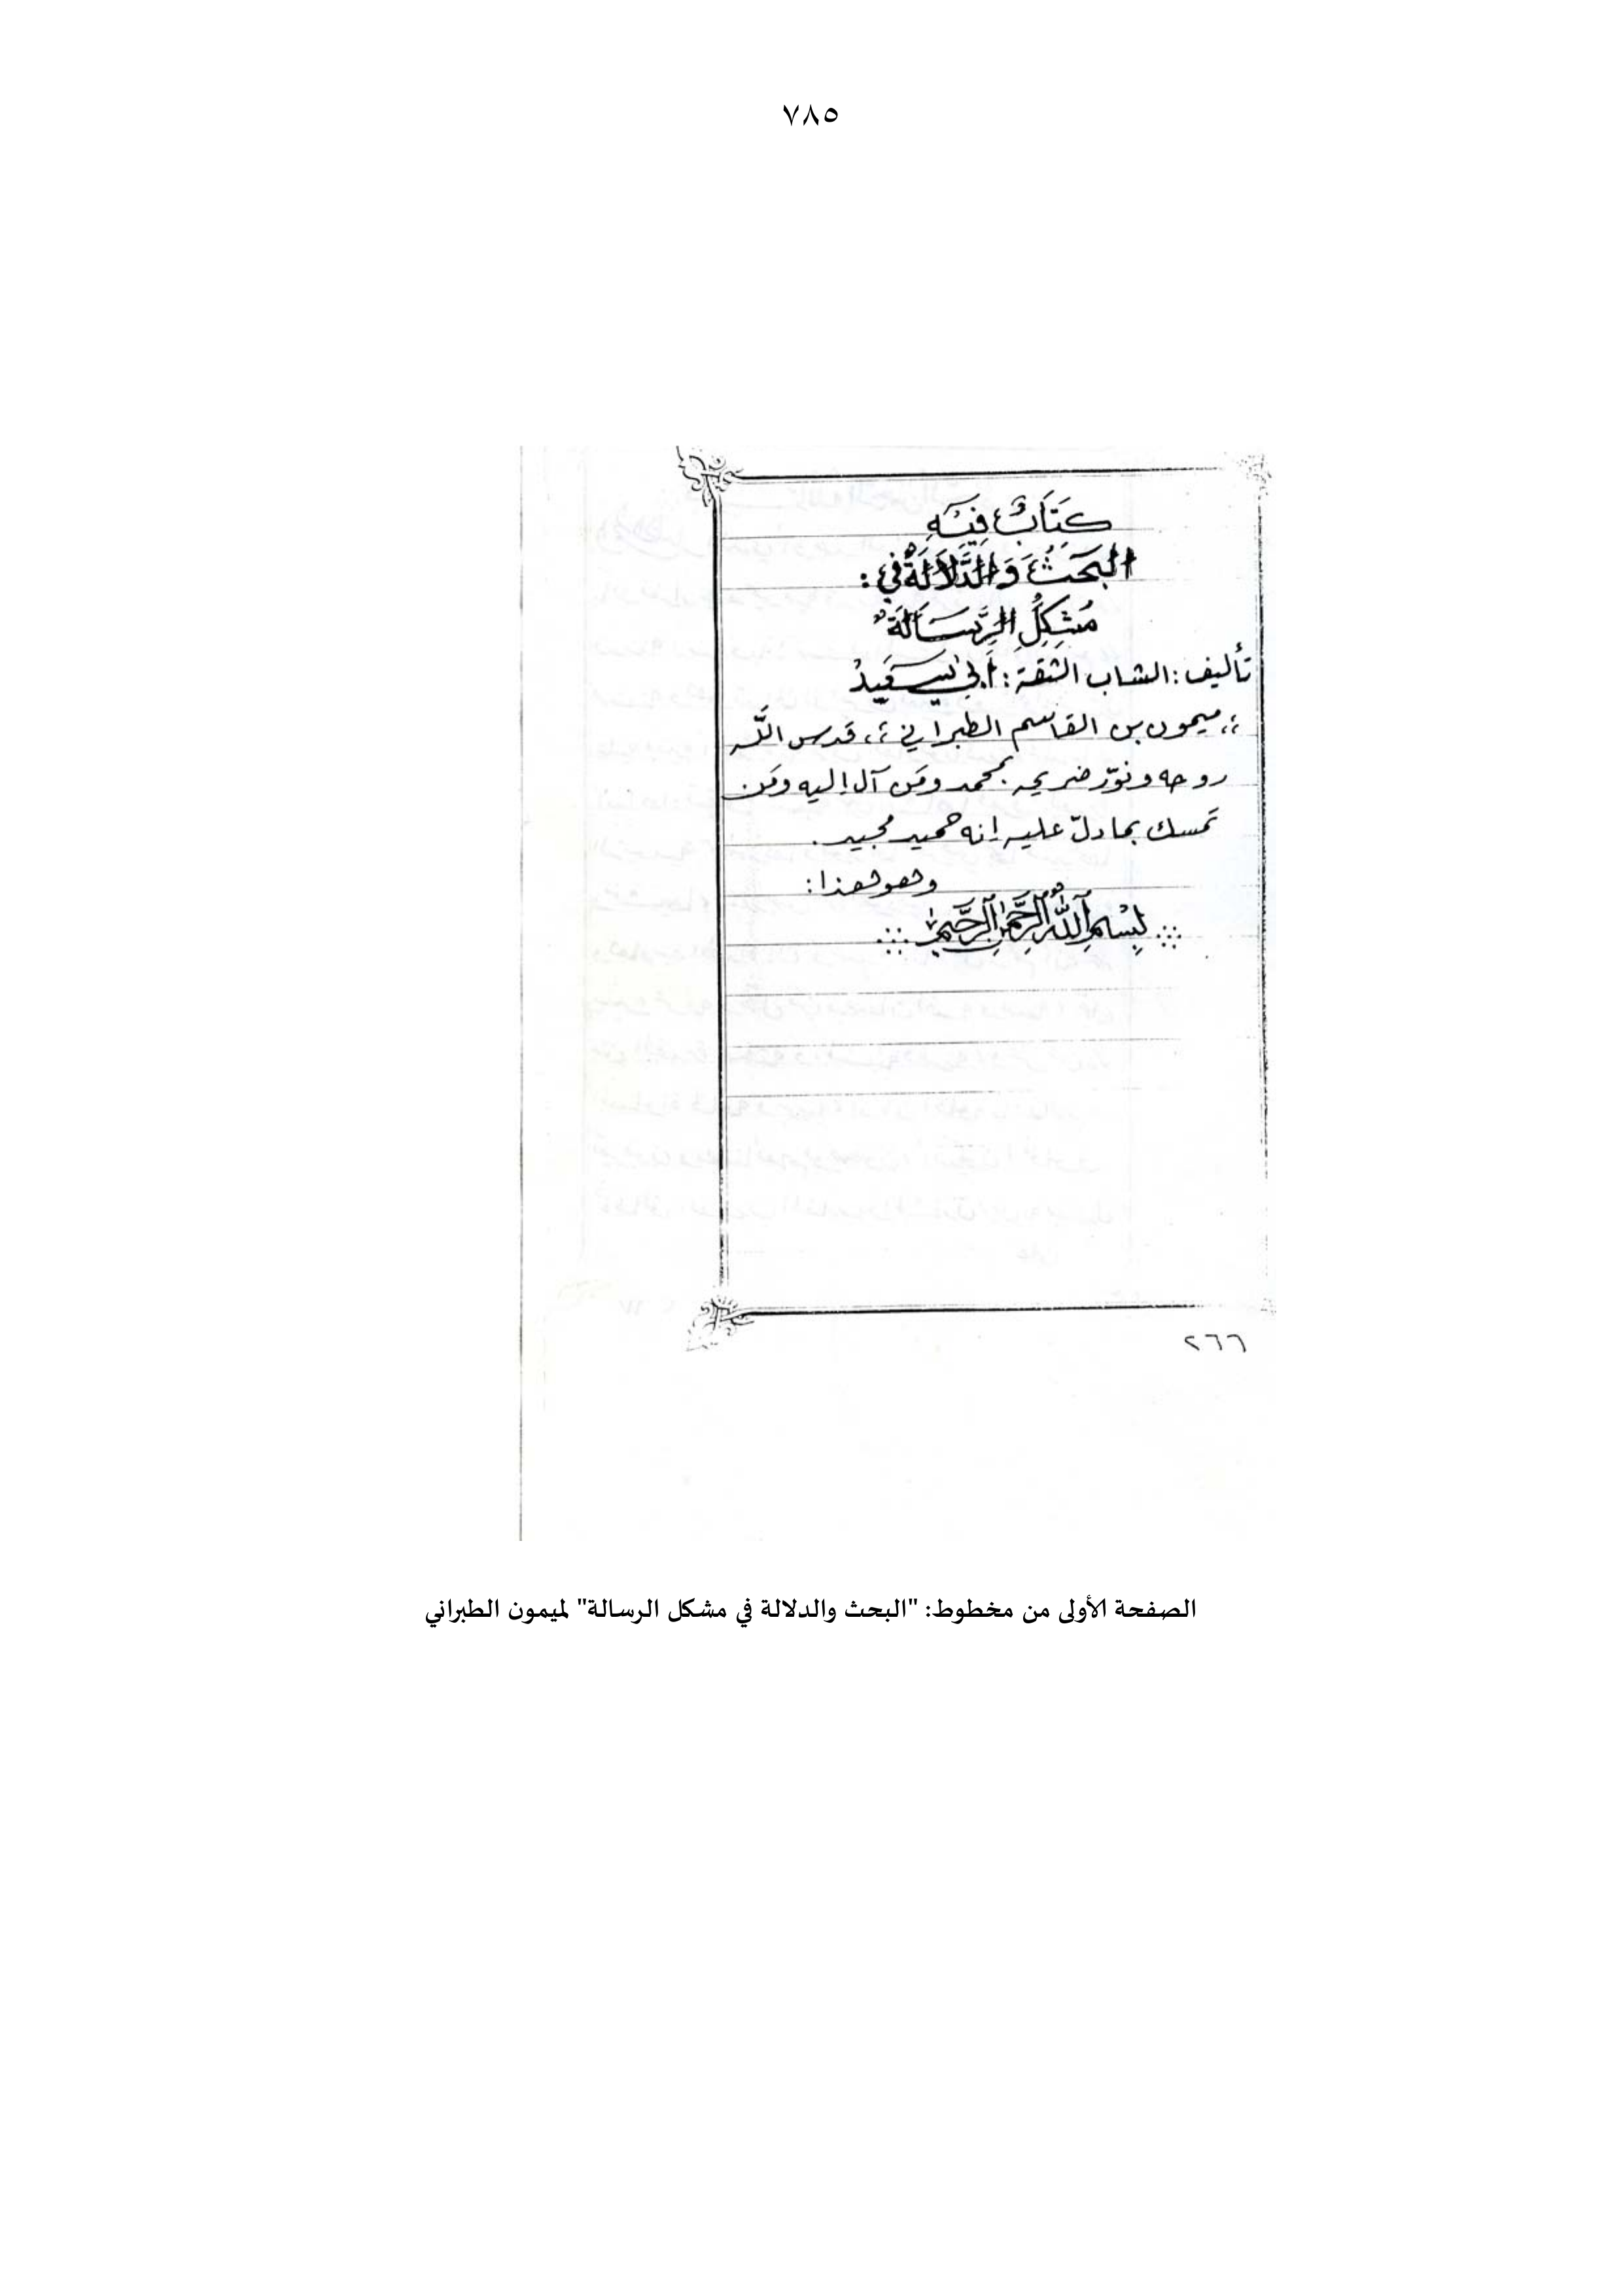 ٧٨٥
كِتَابٌ فِيْهِ
البَحَثُ وَالدَّلَالَةُ فِي :
مُشكِلُ الرِّسَالَة
تأليف : الشاب الثقة : أبي سَعيد
،؛ ميمون بن القاسم الطبراني ؛، قدس اللَّه
روحه ونوّر ضريحه بمحمد ومَن آل إليه ومَن
تمسك بما دلّ عليه إنه حميد مجيد .
وهو هذا :
بِسْمِ اللّٰهِ الرَّحْمٰنِ الرَّحِيمِ
٢٦٦
الصفحة الأولى من مخطوط: "البحث والدلالة في مشكل الرسالة" لميمون الطبراني